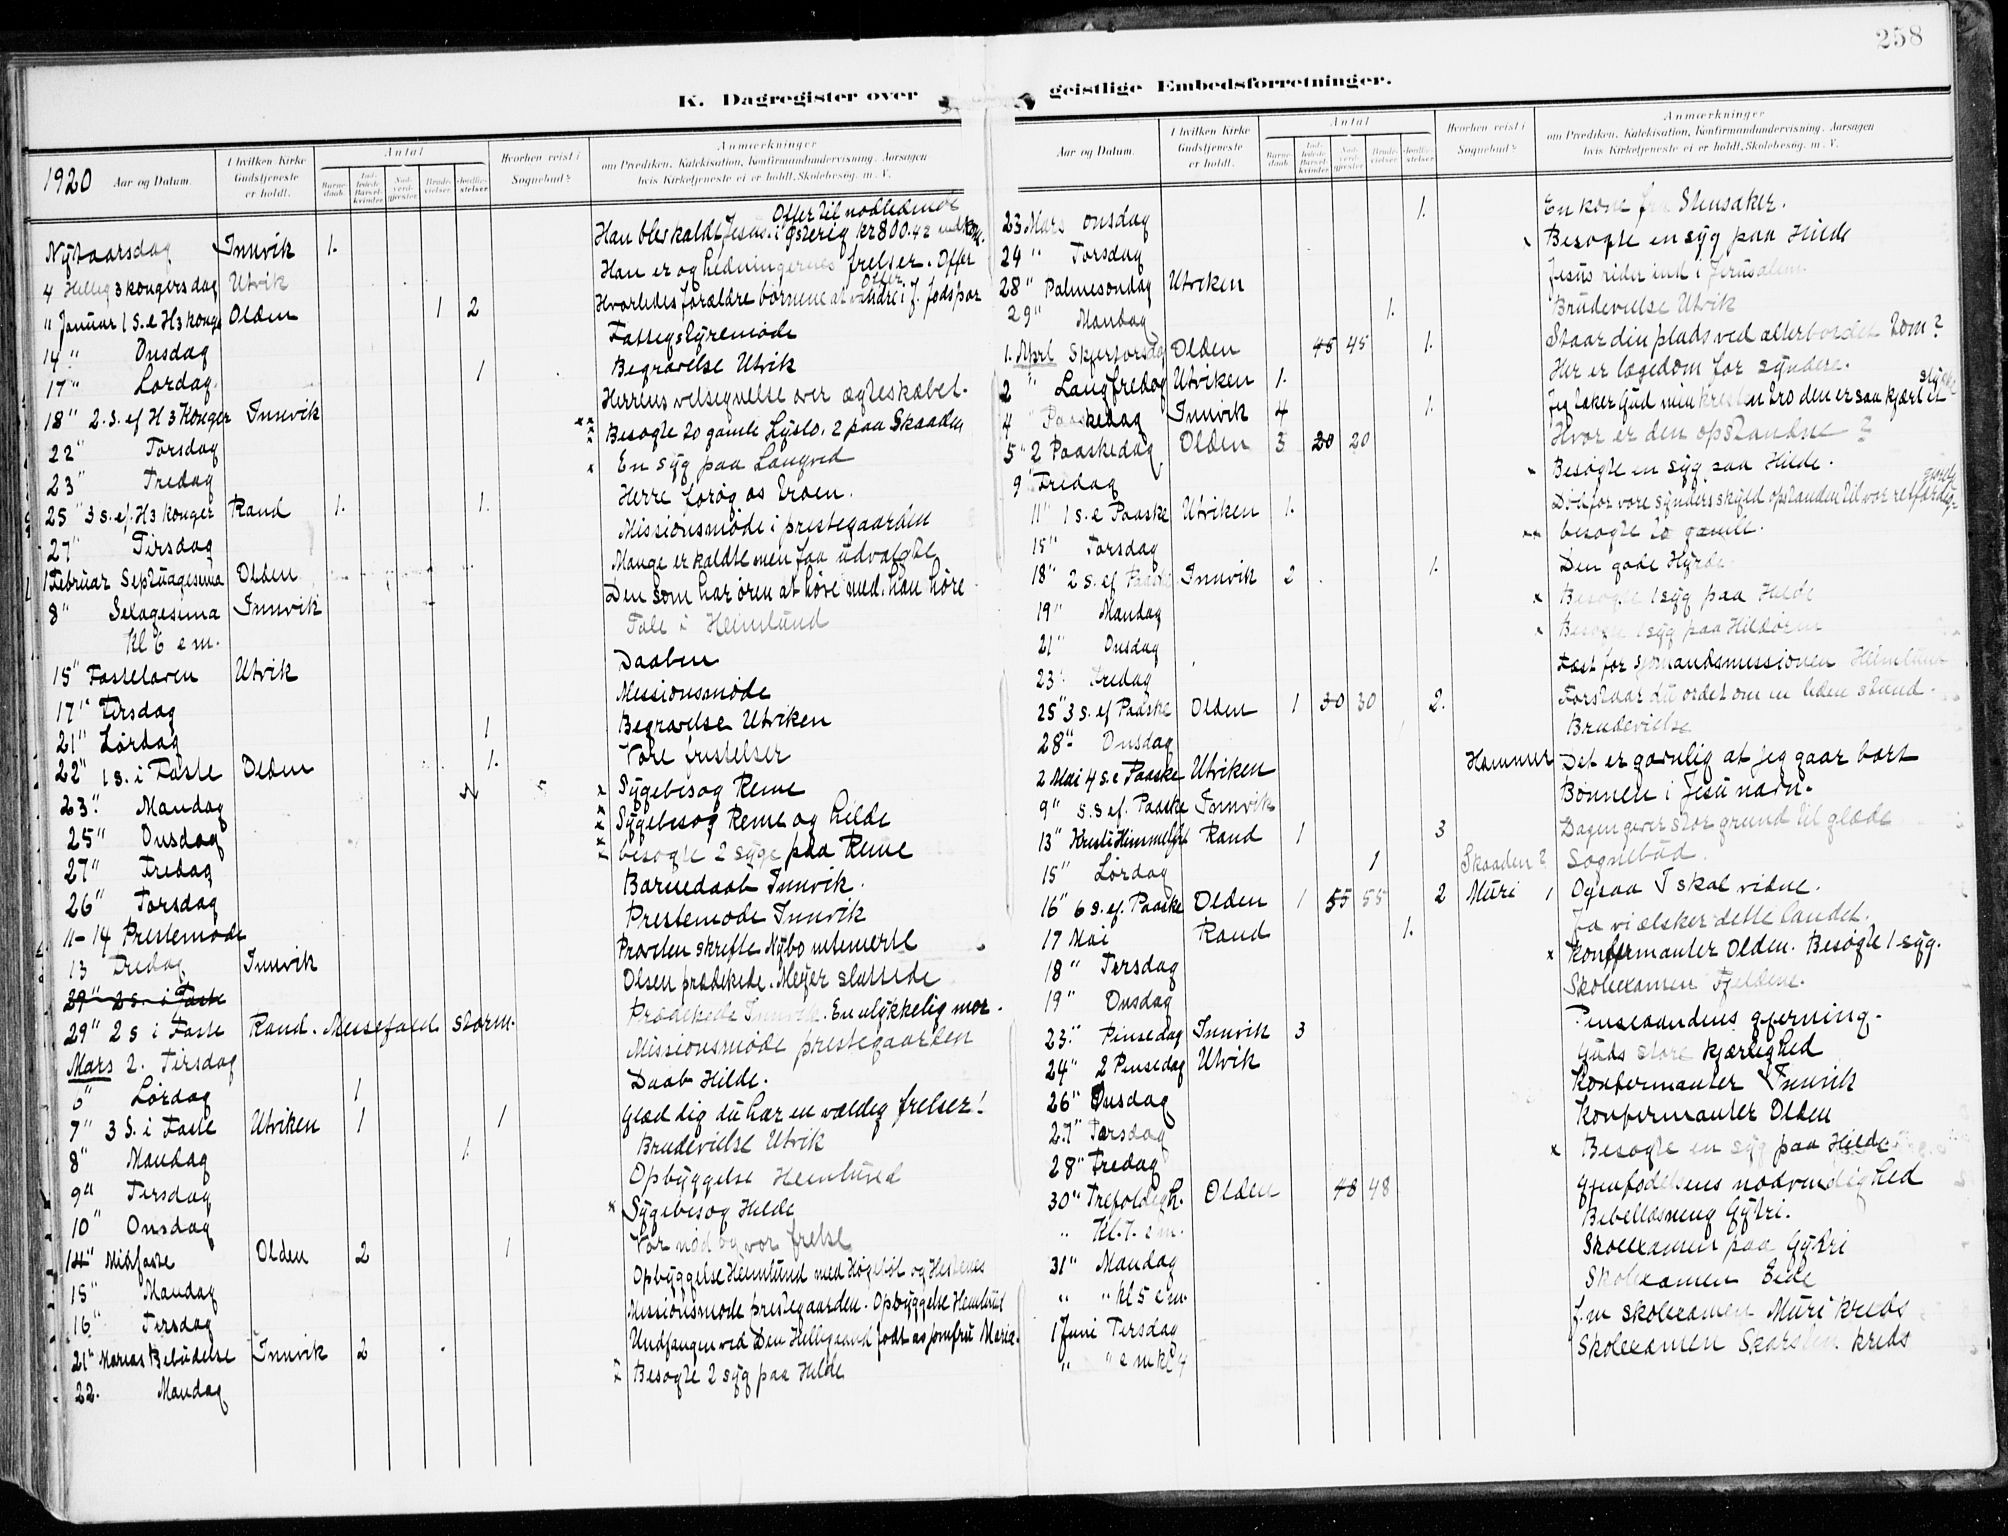 258
K. Dagregister over geistlige Embedsforretninger.
1920 Aar og Datum.
I hvilken Kirke Gudstjeneste er holdt.
Antal
Barnedaab.
Indledede Barselkvinder.
Nadverdgjester.
Brudevielser.
Jordfæstelser.
Hvorhen reist i Sognebud?
Anmærkninger
om Prædiken, Katekisation, Konfirmandundervisning, Aarsagen
hvis Kirketjeneste ei er holdt, Skolebesøg. m. V.
Offer til nødlidende
Nytaarsdag Innvik 1. Han blev kaldt Jesus. i østerig kr 800.42
4 Hellig 3 kongersdag Utvik Han er og hedningernes frelser. Offer
" Januar 1 S. e H 3 konge Olden 1 2 Hvorledes forældre børnene at vandre i J. fodspor
Offer
14 " Onsdag Fattigstyremøde
17 " Lørdag. 1 Begravelse Utvik
18 " 2. S. ef H 3 Konger Innvik Herrens velsignelse over ægteskabet.
22 " Torsdag Besøgte 20 gamle Lyslo. 2 paa Skaaden
23 " Fredag x En syg paa Langved
25 " 3 S. ef. H 3 konger Rand 1. 1. Herre forøg os troen.
27 " Tirsdag Missionsmøde i prestegaarden
1 Februar Septuagesima Olden Mange er kaldte men faa udvalgte
8 " Sexagesima Innvik Den som har øren at høre med, han høre
Kl 6 em. Tale i Heimlund
15 " Fastelaven Utvik Daaben
17 " Tirsdag Missionsmøde
21 " Lørdag 1 Begravelse Utviken
22 " 1 S. i Faste Olden 1. Vore fristelser
23 " Mandag x Sygebesøg Reme
25 " Onsdag Sygebesøg Reme og Hilde
27 " Fredag besøgte 2 syge paa Reme
26 " Torsdag Barnedaab Innvik.
11-14 Prestemøde Prestemøde Innvik
13 Fredag Innvik Provsten skrifte Nybø
29 " 2 S. i Faste Olsen prædikede. Meyer sluttede
29 " 2 S i Faste Rand. Messefald storm. Prædikede Innvik. En ulykkelig mor.
Mars 2. Tirsdag Missionsmøde prestegaarden
6 " Lørdag 1 Daab Hilde.
7 " 3 S. i Faste Utviken 1 1 Glæd dig du har en vældig frelser!
8 " Mandag 1. Brudevielse Utvik
9 " Tirsdag Opbyggelse Heimlund
10 " Onsdag x Sygebesøg Hilde
14 " Midfaste Olden 2 1 Vor nød og vor frelse
15 " Mandag Opbyggelse Heimlund med og Hestenes
16 " Tirsdag Missionsmøde prestegaarden. Opbyggelse Heimlund
21 " Marias Bebudelse Innvik 2 Undfangen ved Den Helligaand født af jomfru Maria.
22. Mandag Besøgte 2 syg paa Hilde
Aar og Datum.
I hvilken Kirke Gudstjeneste er holdt.
Antal
Barnedaab.
Indledede Barselkvinder.
Nadverdgjester.
Brudevielser.
Jordfæstelser.
Hvorhen reist i Sognebud?
Anmærkninger
om Prædiken, Katekisation, Konfirmandundervisning, Aarsagen
hvis Kirketjeneste ei er holdt, Skolebesøg. m. V.
23 Mars onsdag 1. En kone fra Stensaker.
24 " Torsdag x Besøgte en syg paa Hilde
28 " Palmesøndag Utviken Jesus rider ind i Jerusalem.
29 " Mandag 1. Brudevielse Utvik
1. April Skjertorsdag Olden 45 45 1. Staar din plads ved alterbordet tom?
2 " Langfredag Utviken 1. Her er lægedom for syndere.
4 " Paaskedag Innvik 4 1. Jeg taker Gud min tro den er saa kjært et stykke
5 " 2 Paaskedag Olden 3 20 20 Hvor er den opstandne?
9 " Fredag x Besøgte en syg paa Hilde.
11 " 1 S. e Paaske Utviken 1. Død for vore synders skyld opstanden til vor retfærdig-
15 " Torsdag xx besøgte to gamle.
18 " 2 S. ef Paaske Innvik 2 1. Den gode Hyrde.
19 " Mandag x Besøgte 1 syg paa Hilde
21 " Onsdag x Besøgte 1 syg paa
23 " Fredag Fest for sjømandsmissionen Heimlund
25 " 3 S. ef Paaske Olden 1 30 30 2. Forstaar du ordet om en liden stund.
28 " Onsdag Brudevielse
2 Mai 4 S. e Paaske Utviken Hammer Det er gavnlig at jeg gaar bort
9 " 5. S ef. Paaske Innvik Bønnen i Jesu navn.
13 " Kristi Himmelfart Rand 1 3 Dagen giver stor grund til glæde
15 " Lørdag 1 Skaaden 2 Sognebud.
16 " 6 S. ef. Paaske Olden 1 55 55 2 Muri 1 Ogsaa I skal vidne.
17 Mai Rand 1. Ja vi elsker dette landet.
18 " Tirsdag x Konfirmanter Olden. Besøgte 1 syg.
19 " Onsdag Skoleexamen Fjeldene.
23 " Pinsedag Innvik 3 Pinseaandens gjerning.
24 " 2 Pinsedag Utvik Guds store kjærlighed
26 " Onsdag Konfirmanter Innvik
27 " Torsdag Konfirmanter Olden
28 " Fredag x Besøgte en syg paa Hilde
30 " Trefoldigh. Olden 48 48 Gjenfødelsens nødvendighed
" Kl. 7. em. Bibellæsning Gytri.
31 " Mandag Skoleexamen paa Gytri
" " kl 5 em Skolexamen Eide
1 Juni Tirsdag f.m skolexamen Muri kreds
" " e m kl 4 Skolexamen Skarsten kreds